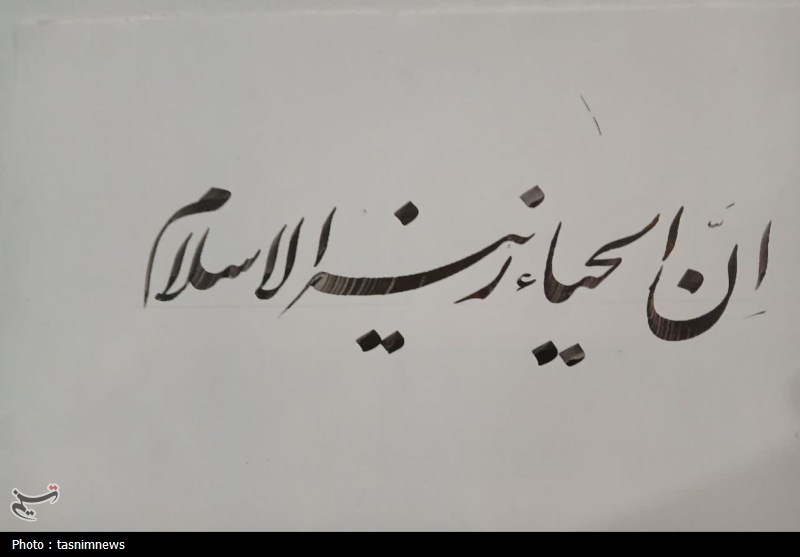 اِنَّ الحیاء زینه الاسلام
تسنیم
Photo : tasnimnews